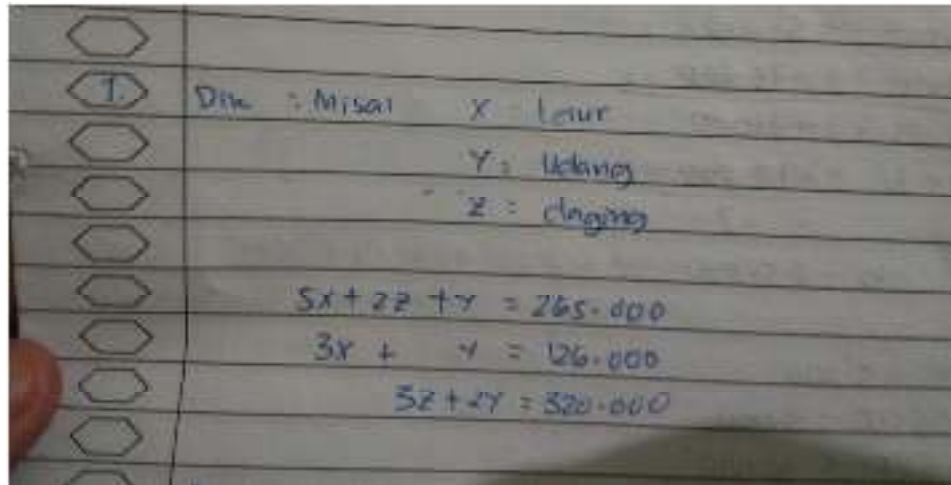 1. Dik : Misal X = telur
Y = Udang
Z = daging
5x + 2z + y = 265.000
3x + y = 126.000
3z + 2y = 320.000